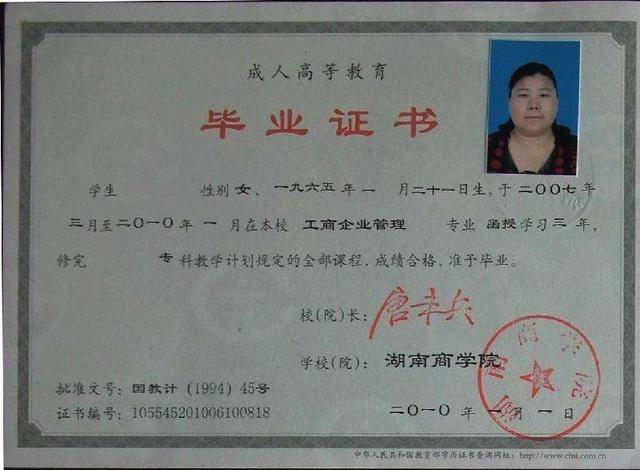 成人高等教育
毕业证书
学生 性别 女、一九六五年 一 月二十一日生,于二〇〇七年
三月至二〇一〇年 一 月在本校 工商企业管理 专业 函授学习三 年,
修完 专 科教学计划规定的全部课程,成绩合格,准予毕业。
校(院)长:
学校(院): 湖南商学院
批准文号: 国教计 (1994) 45号
证书编号: 105545201006100818
二〇一〇 年 一 月 一 日
湖南商学院
中华人民共和国教育部学历证书查询网址: http://www.chsi.com.cn